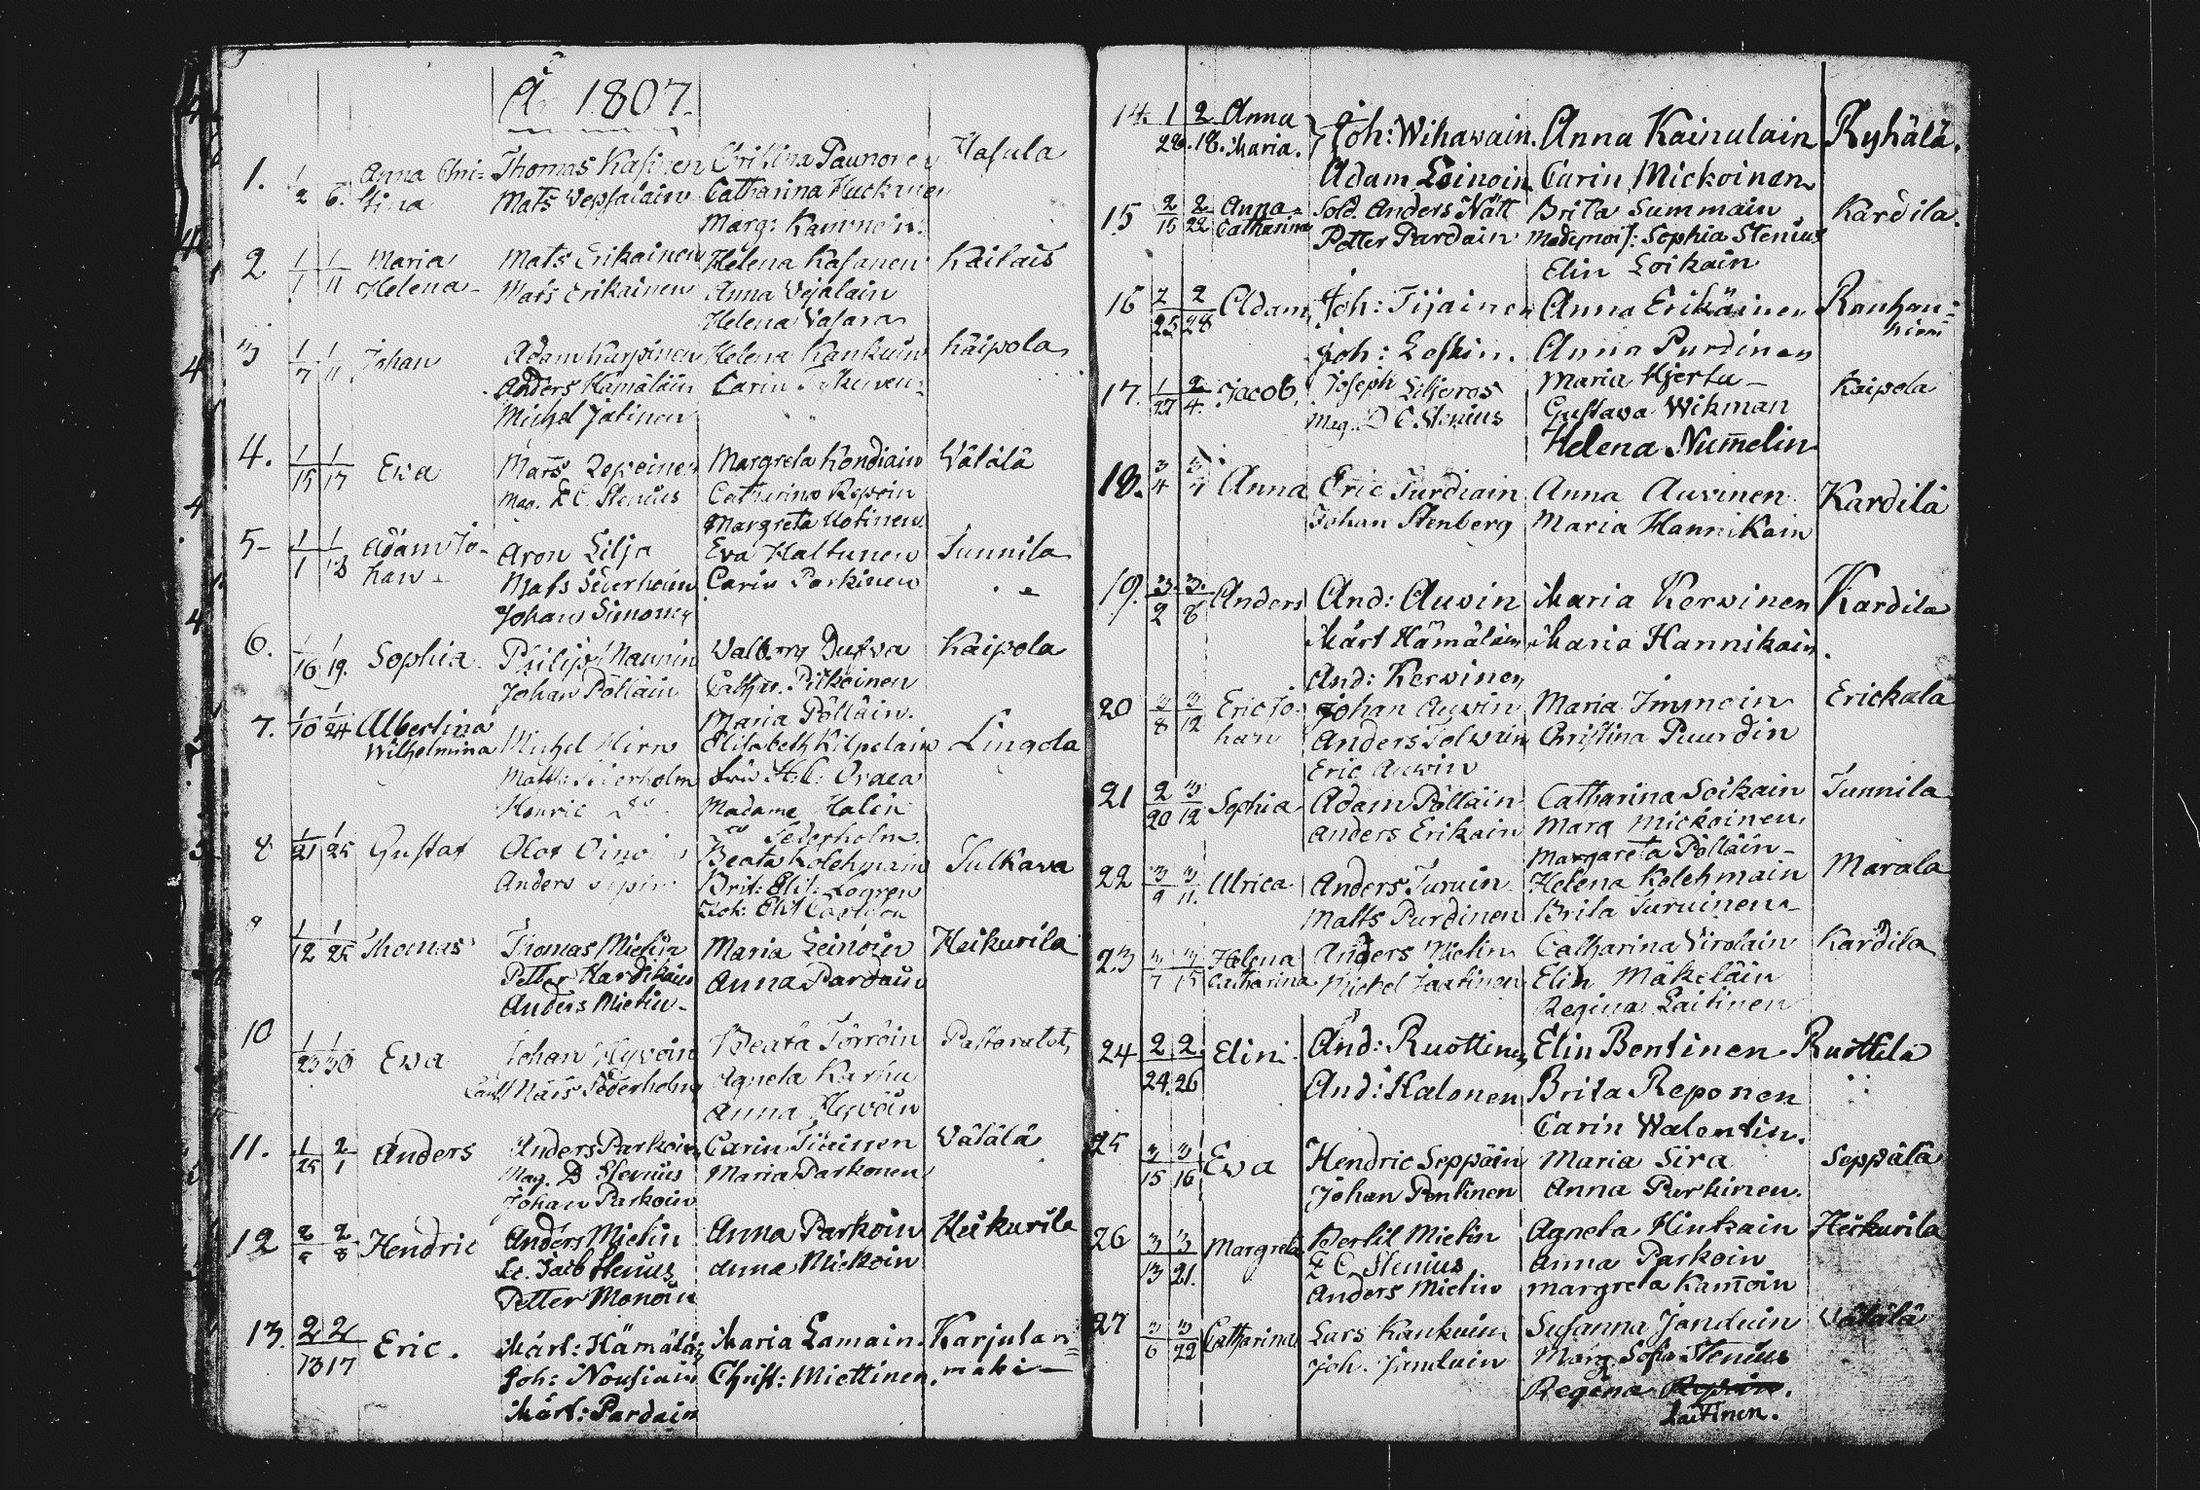 År 1807.
1. 1/2 6. Anna Chri= Thomas Kasinen Christina Paunonen Hasula
stina Mats Vepsäläin Catharina Huckanen
Marg: Kammoin.
2 1/1 1/11 Maria Mats Erikainen Helena Kasanen Kaitais
Helena Mats Erikainen Anna Vejalain
Helena Vasara
3 1/7 1/11 Johan Adam Karpinen Helena Kankuin Kaipola
Anders Kämäläin Carin
Michel Jätinen
4. 1/15 1/17 Eva Mats Repoinen Margreta Kondiain Wätälä
Mag. Z C Stenius Catharina Repoin
Margreta Kotinen
5 1/1 1/18 Adam Jo- Aron Lilja Eva Haltunen Tunnila
han Mats Sederholm Carin Parkinen
Johan Simonen
6. 1/16 1/19. Sophia Philip Naurin Walborg Dufva Kaipola
Johan Pölläin Cathar. Pitkoinen
Maria Pölläin.
7. 1/10 1/24 Albertina Michel Hirn Elisabeth Kilpelain Lingola
Wilhelmina Matts Sederholm H.C. Oraea
Henric Do Madame Halin
Sederholm.
8 1/21 1/25 Gustaf Olof Oino Beata Kolehmain Sulkava
Anders Brit: Elis: Logren
9 1/12 1/25 Thomas Thomas Mietin Maria Leinoin Heikurila
Petter Hardikain Anna Pardain
Anders Mietin
10 1/23 1/30 Eva Johan Hyvöin Beata Törröin Pastoratet
Mats Sederholm Agneta Karhu
Anna Hyvöin
11. 1/25 2/1 Anders Anders Parkoin Carin Tiainen Wätälä
Mag. D Stenius Maria Parkonen
Johan Parkoin
12 2/ 2/8 Hendric Anders Mietin Anna Parkoin Heikurila
Jacob Stenius Anna Mickoin
Petter Monoin
13. 2/13 2/17 Eric. Mårt: Hämäläi Maria Lamain. Karjulan=
Joh: Nousiain Christ: Miettinen. mäki
Mårt: Pardain
14. 1/28. 2/18. Anna Joh: Wihavain. Anna Kainulain Ryhälä.
Maria. Adam Leinoin Carin Mickoinen
15 2/15 2/22 Anna Sold. Anders Nätt Brita Summain Kardila.
Catharina Petter Pardain Mademois: Sophia Stenius
Elin Loikain
16 2/25 2/28 Adam Joh: Tijainen Anna Erikäinen Rauhan=
Joh: Leskin. Anna Purdinen niemi
17. 1/27 2/4. Jacob. Joseph Liljeros Maria Hjerta Kaipola
Mag. D C Stenius Gustava Wikman
Helena Nummelin
18. 3/4 3/7 Anna Eric Turdiain Anna Auvinen Kardilä
Johan Stenberg Maria Hannikain
19. 3/2 3/8 Anders And: Auvin Maria Kervinen Kardila
Mårt Hämäläin Maria Hannikain.
And: Kervinen
20 3/8 3/12 Eric Jo- Johan Auvin Maria Immoin Erickala
han Anders Tolvain Christina Puurdin
Eric Auvin
21 2/20 3/12 Sophia Adam Pölläin Catharina Soikain Tunnila
Anders Erikain Marg Mickoinen
Margareta Pölläin
22 3/9 3/11. Ulrica Anders Turuin Helena Kolehmain Marala
Matts Purdinen Brita Turuinen
23 3/7 3/15 Helena Anders Mietin Catharina Virolain Kardila
Catharina Michel Jaatinen Elin Mäkeläin
Regina Laitinen
24 2/24. 2/26 Elin And: Ruottinen Elin Bentinen Ruottila
And: Kalonen Brita Reponen
Carin Walentin.
25 3/15 3/16 Eva Hendric Seppäin Maria Sira Seppälä
Johan Pentinen Anna Parkinen.
26 3/13 3/21. Margreta Bertil Mietin Agneta Hinkain Heikurila
Z C Stenius Anna Parkoin
Anders Mietin Margreta Kamoin
27 3/6 3/22 Catharina Lars Kankuin Susanna Janduin Wätälä
Joh. Janduin Marg. Sofia Stenius
Regina
Laitinen.